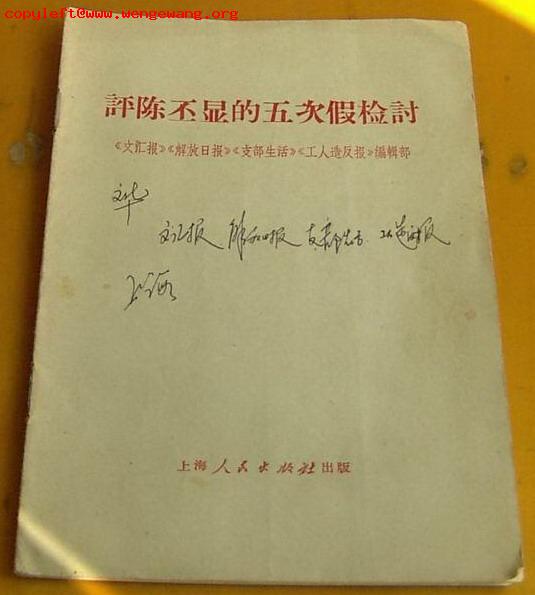 copyleft@www.wengewang.org
評陈丕显的五次假检討
《文汇报》《解放日报》《支部生活》《工人造反报》編輯部
文化
文汇报 解放日报 支部生活 工人造反报
上海
上海人民出版社出版